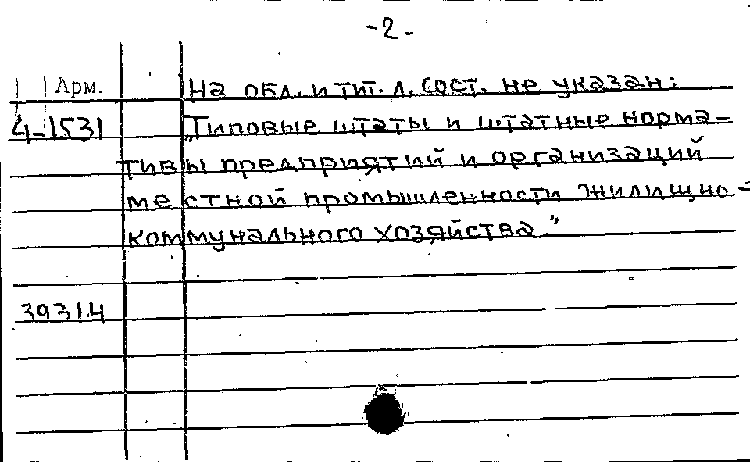 -2-
Арм. На обл. и тит. л. сост. не указан:
4-1531 „Типовые штаты и штатные норма-
тивы предприятий и организаций
местной промышленности жилищно-
коммунального хозяйства"
39314